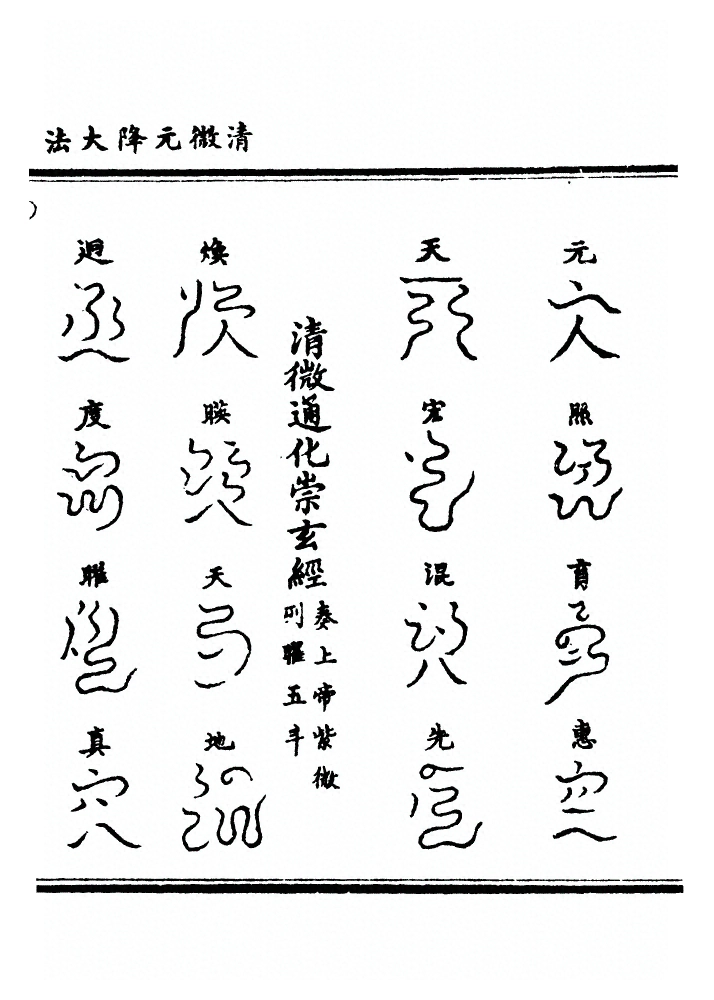 清微元降大法
元照育惠
天宏混先
清微通化崇玄經
奏上帝紫微
列曜五斗
煥暎天地
迴度曜真